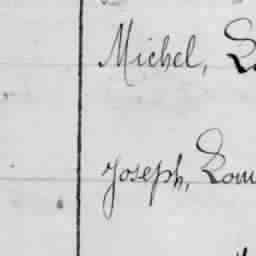 Michel,
Joseph, Lou